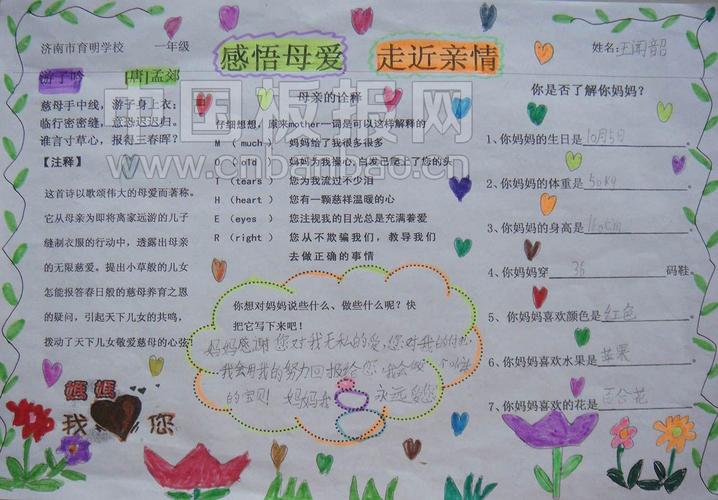 济南市育明学校 一年级
感悟母爱 走近亲情
姓名:王闻韶
游子吟 [唐]孟郊
慈母手中线，游子身上衣；
临行密密缝，意恐迟迟归。
谁言寸草心，报得三春晖？
【注释】
这首诗以歌颂伟大的母爱而著称。
它从母亲为即将离家远游的儿子
缝制衣服的行动中，透露出母亲
的无限慈爱。提出小草般的儿女
怎能报答春日般的慈母养育之恩
的疑问，引起天下儿女的共鸣，
拨动了天下儿女敬爱慈母的心弦！
媽媽
我 您
母亲的诠释
仔细想想，原来mother一词是可以这样解释的
M （much） 妈妈给了我很多很多
O （old） 妈妈为我操心，白发已爬上了您的头
T （tears） 您为我流过不少泪
H （heart） 您有一颗慈祥温暖的心
E （eyes） 您注视我的目光总是充满着爱
R （right） 您从不欺骗我们，教导我们
去做正确的事情
你想对妈妈说些什么、做些什么呢？快
把它写下来吧！
妈妈感谢您对我无私的爱,您对我的付出,
我会用我的努力回报给您,我会做个
的宝贝! 妈妈我 永远爱您
你是否了解你妈妈？
1、你妈妈的生日是 10月5日
2、你妈妈的体重是 50kg
3、你妈妈的身高是
4、你妈妈穿 36 码鞋。
5、你妈妈喜欢颜色是 红色
6、你妈妈喜欢水果是 苹果
7、你妈妈喜欢的花是 百合花
中国板报网
www.cnbanbao.cn